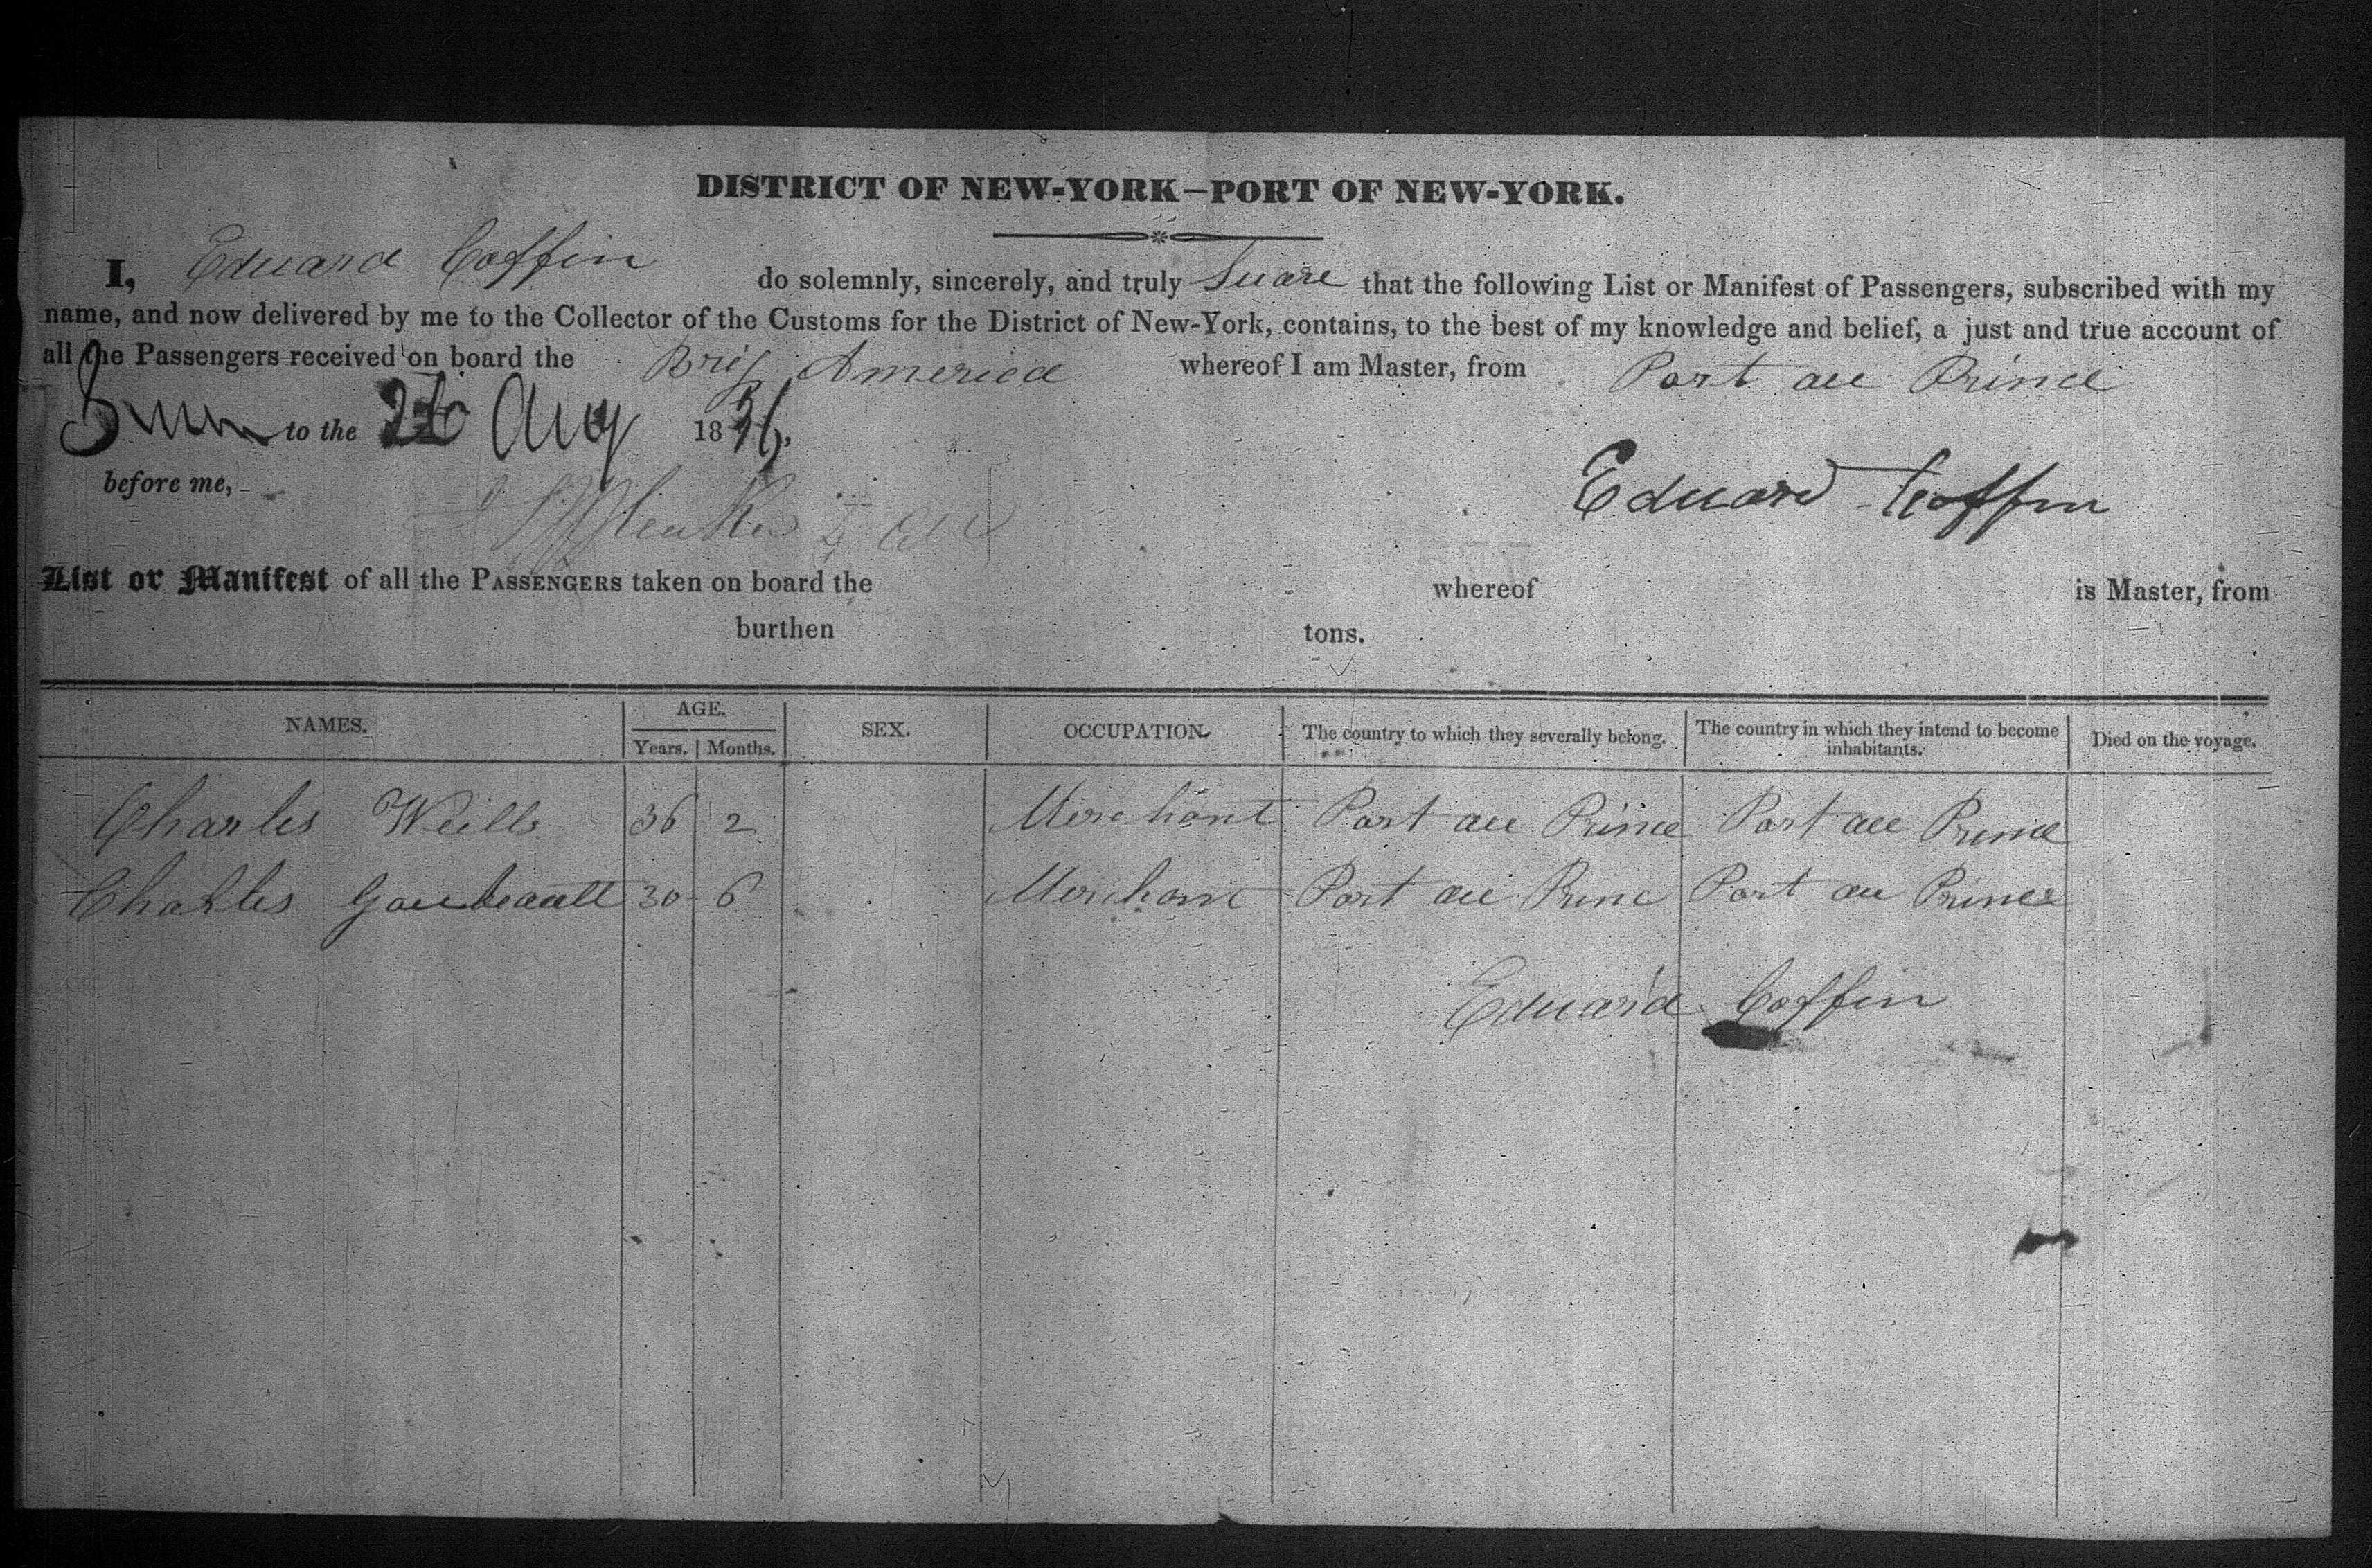 DISTRICT OF NEW-YORK—PORT OF NEW-YORK.
I, Eduard Coffin do solemnly, sincerely, and truly Suare that the following List or Manifest of Passengers, subscribed with my
name, and now delivered by me to the Collector of the Customs for the District of New-York, contains, to the best of my knowledge and belief, a just and true account of
all the Passengers received on board the Brig America whereof I am Master, from Port au Prince
Sworn to the 26 Aug 1836,
before me, Eduard Coffin
List or Manifest of all the PASSENGERS taken on board the whereof is Master, from
burthen tons.
NAMES. AGE. SEX. OCCUPATION. The country to which they severally belong. The country in which they intend to become inhabitants. Died on the voyage.
Years. Months.
Charles Weills 36 2 Merchant Port au Prince Port au Prince
Charles Goubeault 30 6 Merchant Port au Princ Port au Prince
Eduard Coffin